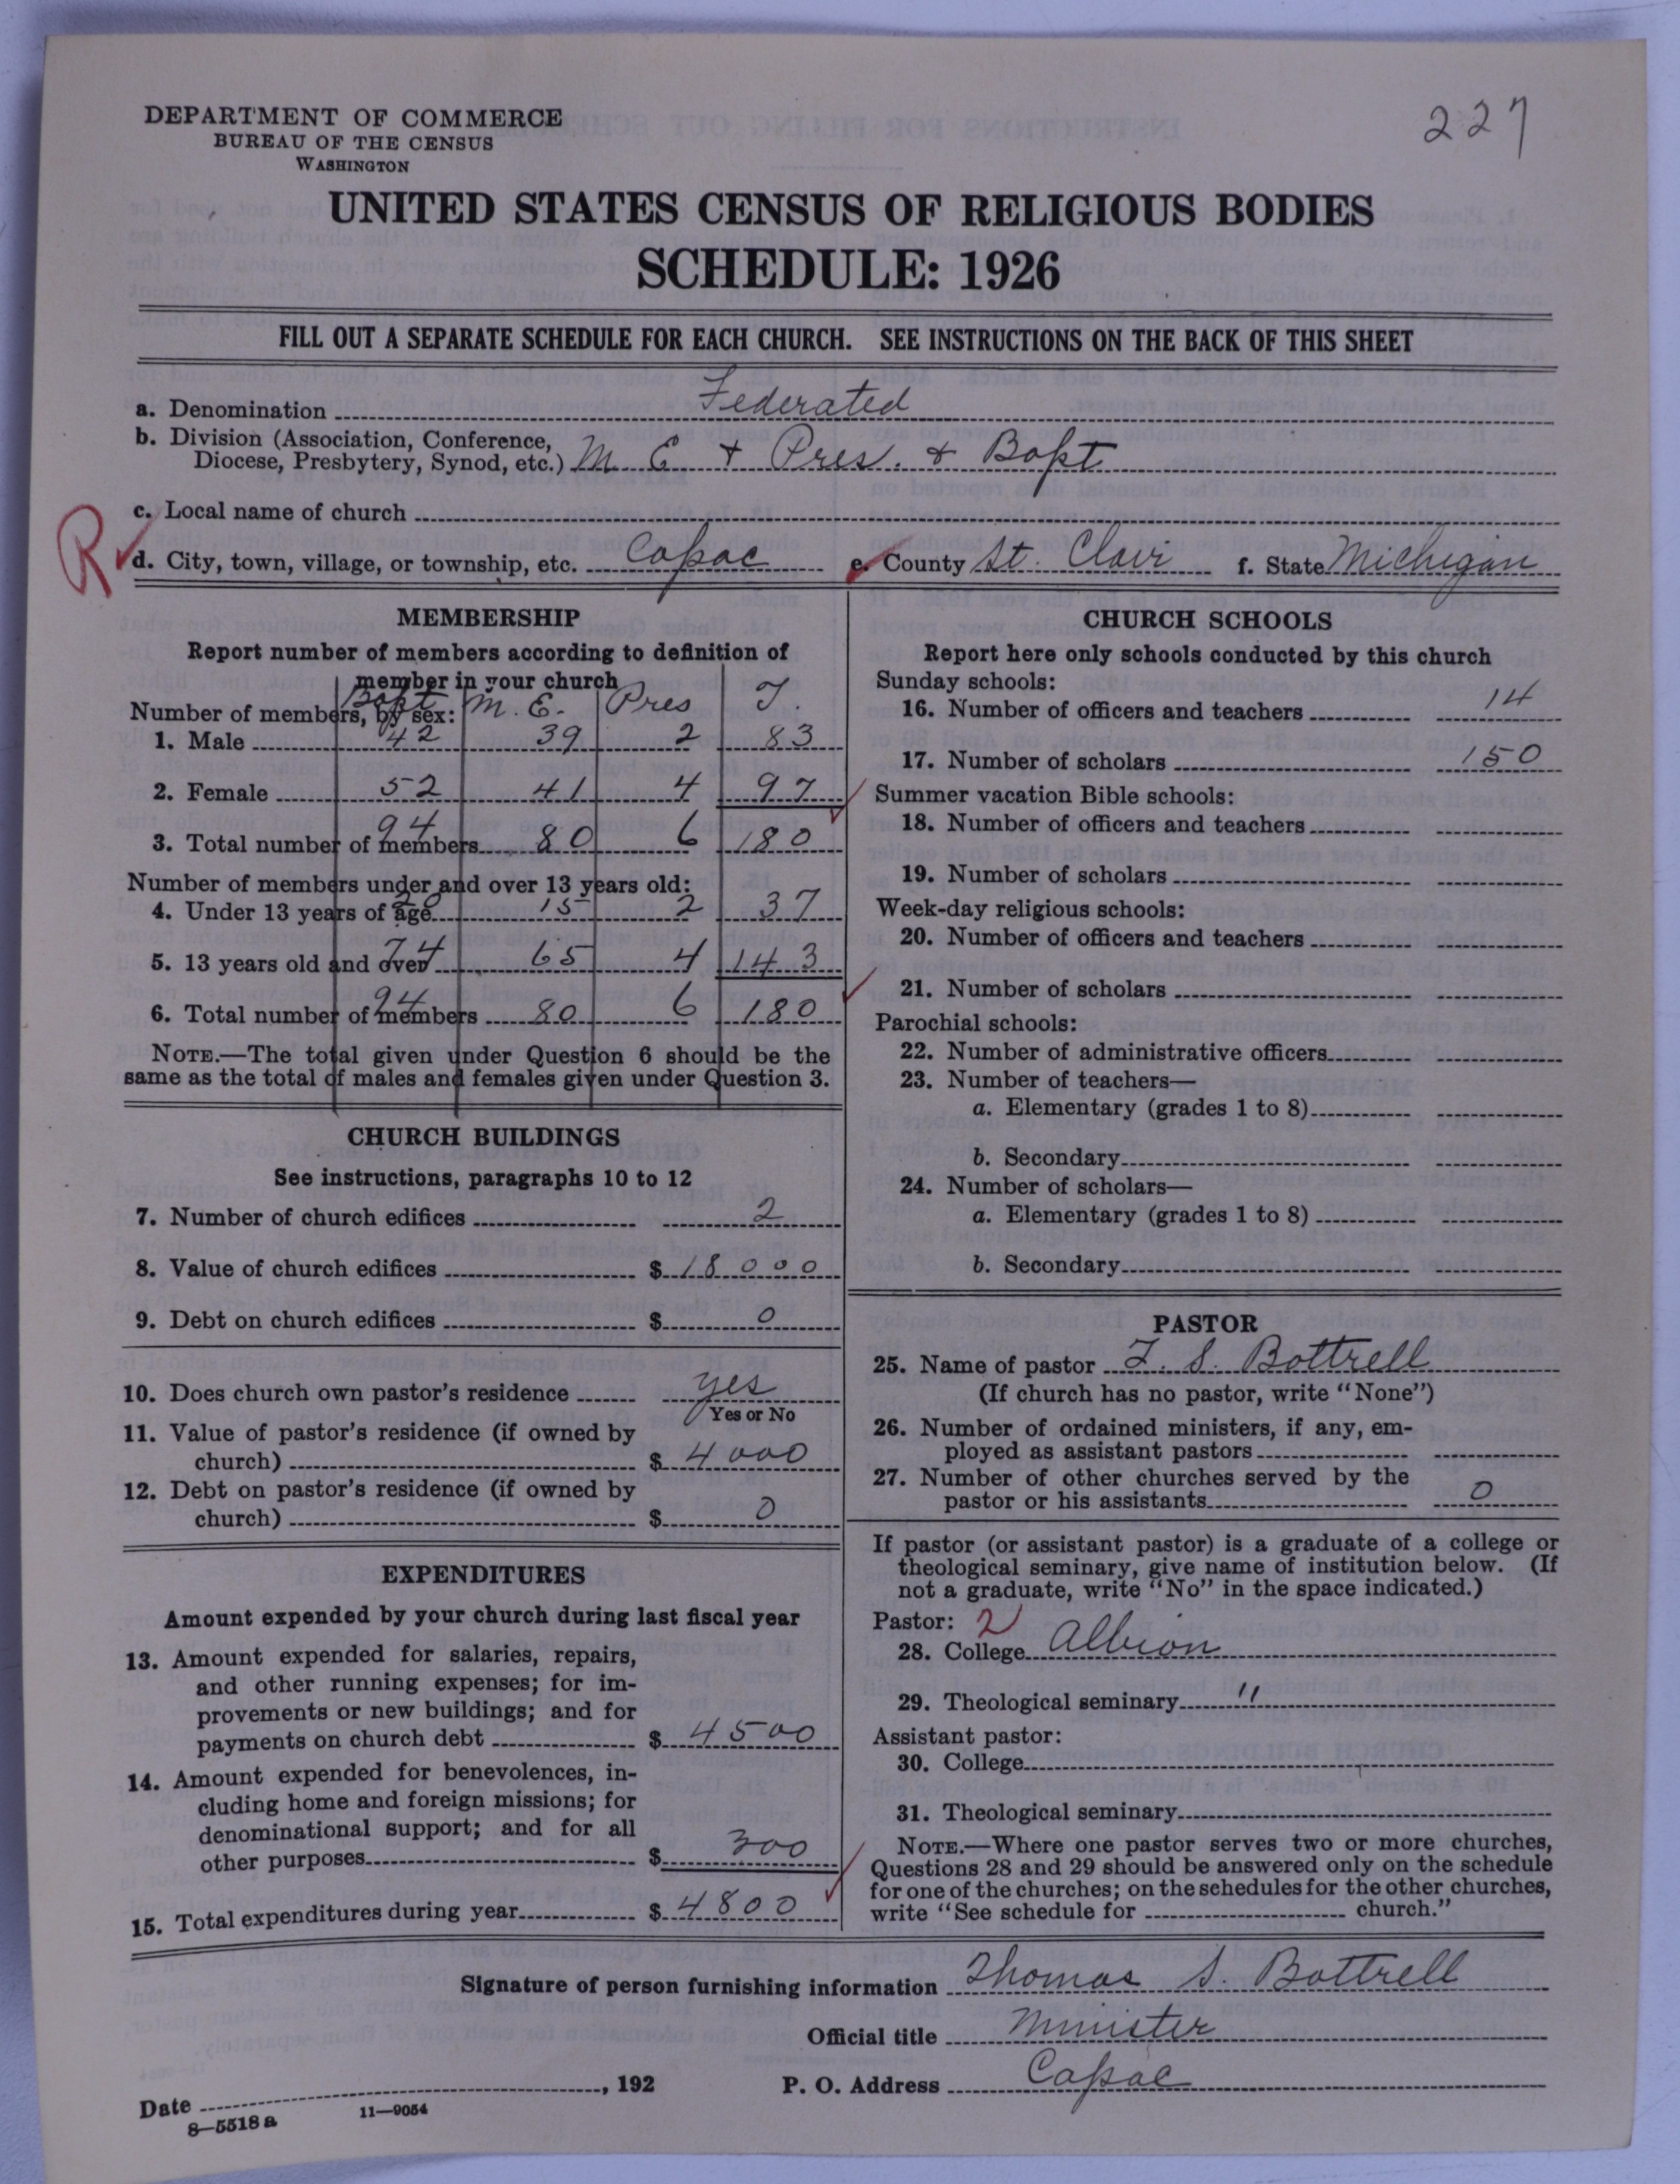 DEPARTMENT OF COMMERCE
BUREAU OF THE CENSUS
WASHINGTON
227
UNITED STATES CENSUS OF RELIGIOUS BODIES
SCHEDULE: 1926
FILL OUT A SEPARATE SCHEDULE FOR EACH CHURCH. SEE INSTRUCTIONS ON THE BACK OF THIS SHEET
a. Denomination Federated
b. Division (Association, Conference,
Diocese, Presbytery, Synod, etc.) M. E + Pres. + Bapt
c. Local name of church
R
d. City, town, village, or township, etc. Capac e. County St. Clair f. State Michigan
MEMBERSHIP
Report number of members according to definition of
member in your church
Bapt M. E. Pres T.
Number of members, by sex:
1. Male 42 39 2 83
2. Female 52 41 4 97
3. Total number of members 94 80 6 180
Number of members under and over 13 years old:
4. Under 13 years of age 20 15 2 37
5. 13 years old and over 74 65 4 143
6. Total number of members 94 80 6 180
NOTE.—The total given under Question 6 should be the
same as the total of males and females given under Question 3.
CHURCH BUILDINGS
See instructions, paragraphs 10 to 12
7. Number of church edifices 2
8. Value of church edifices $ 18000
9. Debt on church edifices $ 0
10. Does church own pastor's residence yes
Yes or No
11. Value of pastor's residence (if owned by
church) $ 4000
12. Debt on pastor's residence (if owned by
church) $ 0
EXPENDITURES
Amount expended by your church during last fiscal year
13. Amount expended for salaries, repairs,
and other running expenses; for im-
provements or new buildings; and for
payments on church debt $ 4500
14. Amount expended for benevolences, in-
cluding home and foreign missions; for
denominational support; and for all
other purposes $ 300
15. Total expenditures during year $ 4800
CHURCH SCHOOLS
Report here only schools conducted by this church
Sunday schools:
16. Number of officers and teachers 14
17. Number of scholars 150
Summer vacation Bible schools:
18. Number of officers and teachers
19. Number of scholars
Week-day religious schools:
20. Number of officers and teachers
21. Number of scholars
Parochial schools:
22. Number of administrative officers
23. Number of teachers—
a. Elementary (grades 1 to 8)
b. Secondary
24. Number of scholars—
a. Elementary (grades 1 to 8)
b. Secondary
PASTOR
25. Name of pastor T. S. Bottrell
(If church has no pastor, write "None")
26. Number of ordained ministers, if any, em-
ployed as assistant pastors
27. Number of other churches served by the
pastor or his assistants 0
If pastor (or assistant pastor) is a graduate of a college or
theological seminary, give name of institution below. (If
not a graduate, write "No" in the space indicated.)
Pastor: 2
28. College Albion
29. Theological seminary "
Assistant pastor:
30. College
31. Theological seminary
NOTE.—Where one pastor serves two or more churches,
Questions 28 and 29 should be answered only on the schedule
for one of the churches; on the schedules for the other churches,
write "See schedule for church."
Signature of person furnishing information Thomas S. Bottrell
Official title Minister
Date , 192 P. O. Address Capac
8—5518 a 11—9054